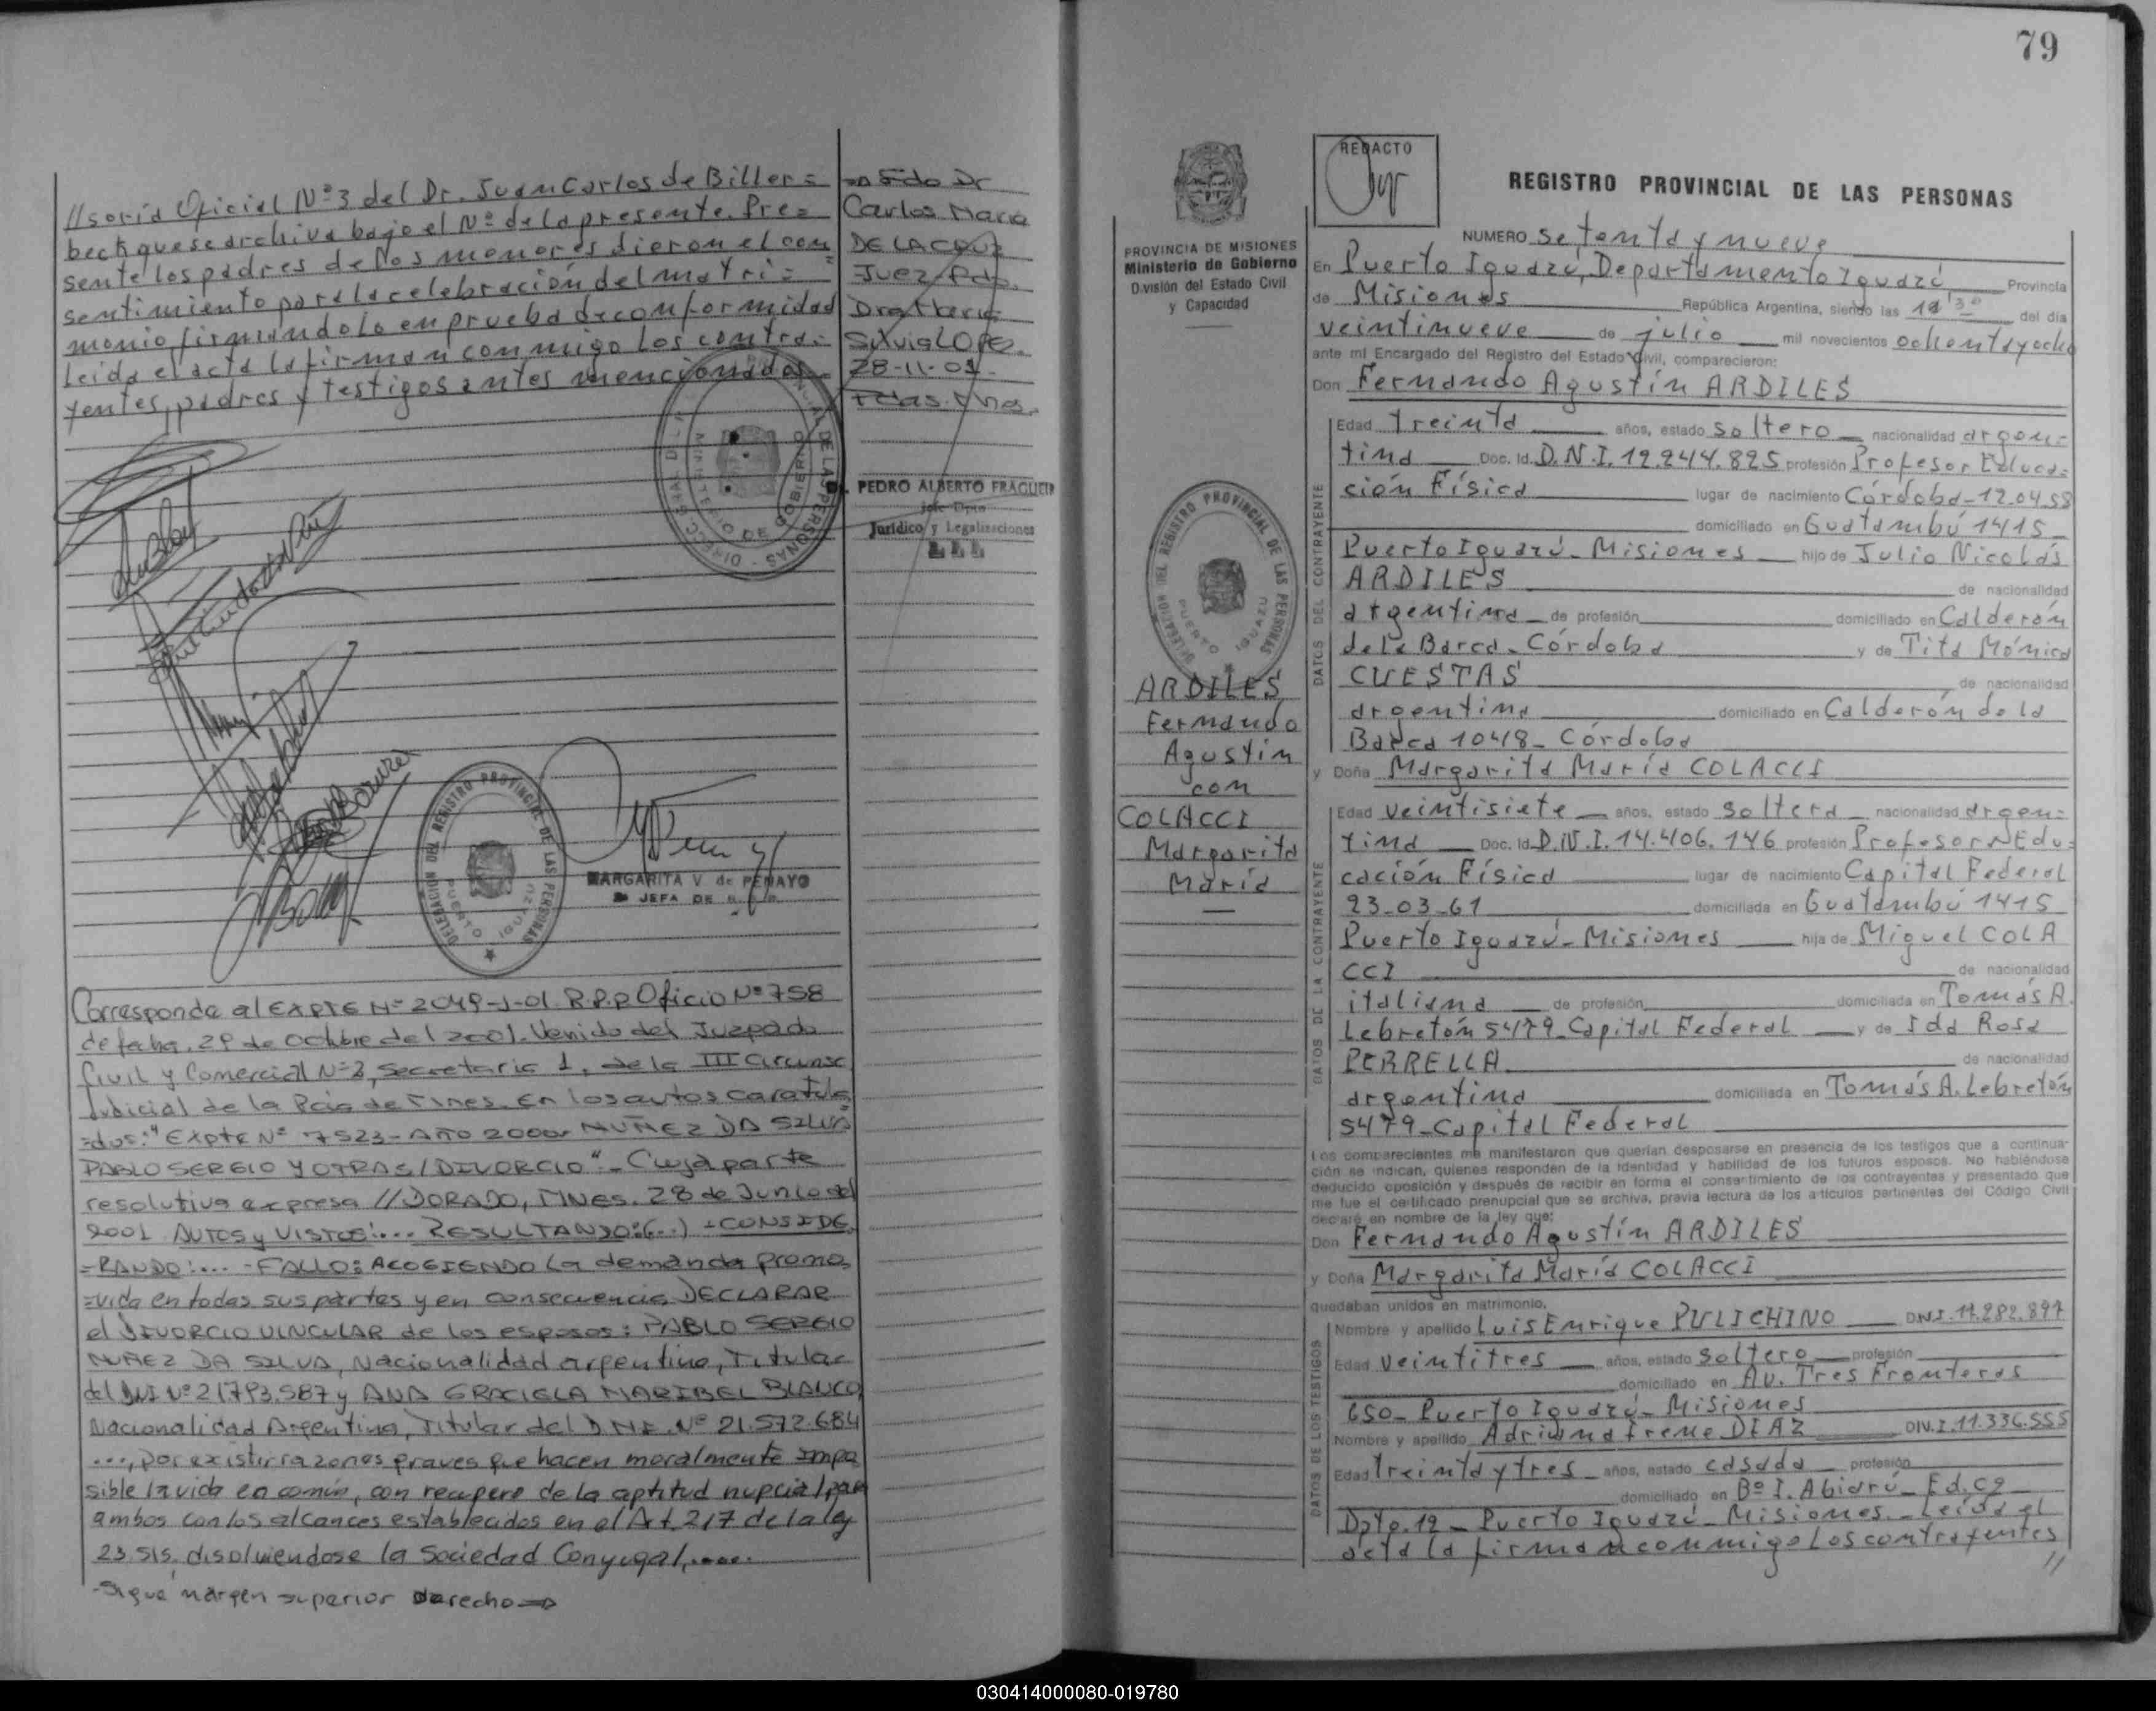 //soría Oficial Nº3 del Dr. Juan Carlos de Biller=
beck que se archiva bajo el Nº de la presente. Pre=
sente los padres de los menores dieron el con=
sentimiento para la celebración del matri=
monio firmándolo en prueba de conformidad
Leida el acta la firman conmigo los contra=
yentes, padres y testigos antes mencionados.
Dr
Carlos Maria
DE LA CRUZ
Juez
Silvia LOPEZ.
28-11-01.
PEDRO ALBERTO
Jefe Dpto
Jurídico y Legalizaciones
DELEGACION DEL REGISTRO PROVINCIAL DE LAS PERSONAS
PUERTO IGUAZU
MARGARITA V. de PENAYO
JEFA DE
Corresponde al EXPTE Nº 2049-J-01 R.P.P Oficio Nº 758
de fecha, 29 de Octubre del 2001. Venido del Juzgado
Civil y Comercial Nº 2, Secretaria 1, de la III Circunsc
Judicial de la Pcia de Mnes. En los autos caratula
=dos: "Expte Nº 7523-AÑO 2000 NUÑEZ DA SILVA
PABLO SERGIO Y OTRA S/DIVORCIO".- Cuya parte
resolutiva expresa //DORADO, MNes. 28 de Junio del
2001 AUTOS y VISTOS:... RESULTANDO:(...) =CONSIDE
=RANDO:... -FALLO: ACOGIENDO la demanda promo
=vida en todas sus partes y en consecuencia DECLARAR
el DIVORCIO VINCULAR de los esposos: PABLO SERGIO
NUÑEZ DA SILVA, Nacionalidad argentino, Titular
del DNI Nº 21793.587 y ANA GRACIELA MARIBEL BLANCO
Nacionalidad Argentina, Titular del D.N.I. Nº 21.572.684
..., por existir razones graves que hacen moralmente impo
sible la vida en común, con recupero de la aptitud nupcial para
ambos con los alcances establecidos en el Art. 217 de la ley
23.515, disolviendose la Sociedad Conyugal,....
-Sigue márgen superior Derecho⇒
79
PROVINCIA DE MISIONES
Ministerio de Gobierno
División del Estado Civil
y Capacidad
DELEGACION DEL REGISTRO PROVINCIAL DE LAS PERSONAS
PUERTO IGUAZU
ARDILES
Fernando
Agustín
con
COLACCI
Margarita
María
REDACTO
REGISTRO PROVINCIAL DE LAS PERSONAS
NUMERO setenta y nueve
En Puerto Iguazú, Departamento Iguazú Provincia
de Misiones República Argentina, siendo las del día
veintinueve de julio mil novecientos ochenta y ocho
ante mí Encargado del Registro del Estado Civil, comparecieron:
Don Fernando Agustín ARDILES
DATOS DEL CONTRAYENTE
Edad treinta años, estado soltero nacionalidad argen=
tina Doc. Id. D.N.I. 12.244.825 profesión Profesor Educa=
ción Física lugar de nacimiento Córdoba-12.04.58
domiciliado en Guatambú 1415
Puerto Iguazú-Misiones hijo de Julio Nicolás
ARDILES de nacionalidad
argentina de profesión domiciliado en Calderón
de la Barca-Córdoba y de Tita Mónica
CUESTAS de nacionalidad
argentina domiciliado en Calderón de la
Barca 1048-Córdoba
y Doña Margarita María COLACCI
DATOS DE LA CONTRAYENTE
Edad veintisiete años, estado soltera nacionalidad argen=
tina Doc. Id. D.N.I. 14.406.146 profesión Profesora Edu=
cación Física lugar de nacimiento Capital Federal
23-03-61 domiciliada en Guatambú 1415
Puerto Iguazú-Misiones hija de Miguel COLA
CCI de nacionalidad
italiana de profesión domiciliada en Tomás A.
Lebretón 5479-Capital Federal y de Ida Rosa
PERRELLA de nacionalidad
argentina domiciliada en Tomás A. Lebretón
5479-Capital Federal
Los comparecientes me manifestaron que querían desposarse en presencia de los testigos que a continua-
ción se indican, quienes responden de la identidad y habilidad de los futuros esposos. No habiéndose
deducido oposición y después de recibir en forma el consentimiento de los contrayentes y presentado que
me fue el certificado prenupcial que se archiva, previa lectura de los artículos pertinentes del Código Civil
declaré en nombre de la ley que:
Don Fernando Agustín ARDILES
y Doña Margarita María COLACCI
quedaban unidos en matrimonio.
DATOS DE LOS TESTIGOS
Nombre y apellido Luis Enrique PULICHINO DNI. 17.282.897
Edad veintitres años, estado soltero profesión
domiciliado en Av. Tres Fronteras
650-Puerto Iguazú-Misiones
Nombre y apellido Adriana Irene DIAZ DN.I. 11.336.555
Edad treinta y tres años, estado casada profesión
domiciliado en Bº I. Abiarú-Ed.C2
Dpto.12-Puerto Iguazú-Misiones.-Leída el
acta la firman conmigo los contrayentes
//
030414000080-019780